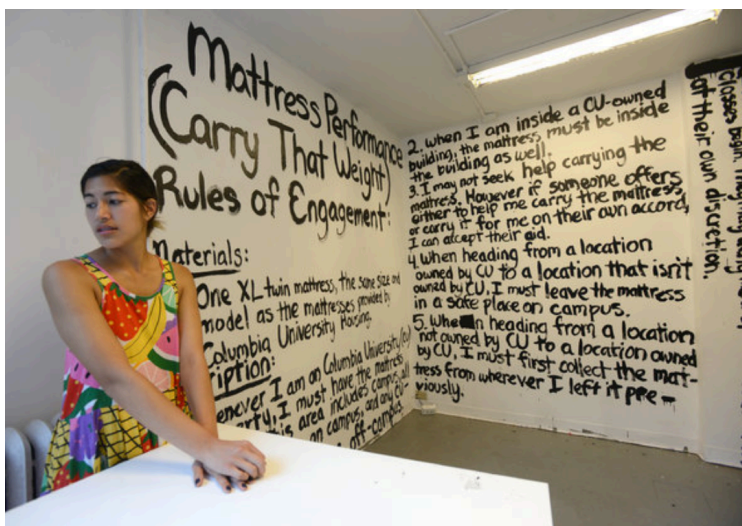 Mattress Performance
(Carry That Weight)
Rules of Engagement:
Materials:
One XL twin mattress, the same size and
model as the mattresses provided by
Columbia University Housing.
ription:
enever I am on Columbia University
erty, I must have the mattress
is area includes campus, all
on campus, and any CU-
off-campus.
2. When I am inside a CU-owned
building, the mattress must be inside
the building as well.
3. I may not seek help carrying the
mattress. However if someone offers
either to help me carry the mattress,
or carry it for me on their own accord,
I can accept their aid.
4. When heading from a location
owned by CU to a location that isn't
owned by CU, I must leave the mattress
in a safe place on campus.
5. When heading from a location
not owned by CU to a location owned
by CU, I must first collect the mat-
tress from wherever I left it pre-
viously.
Classes begin. They may
at their own discretion.